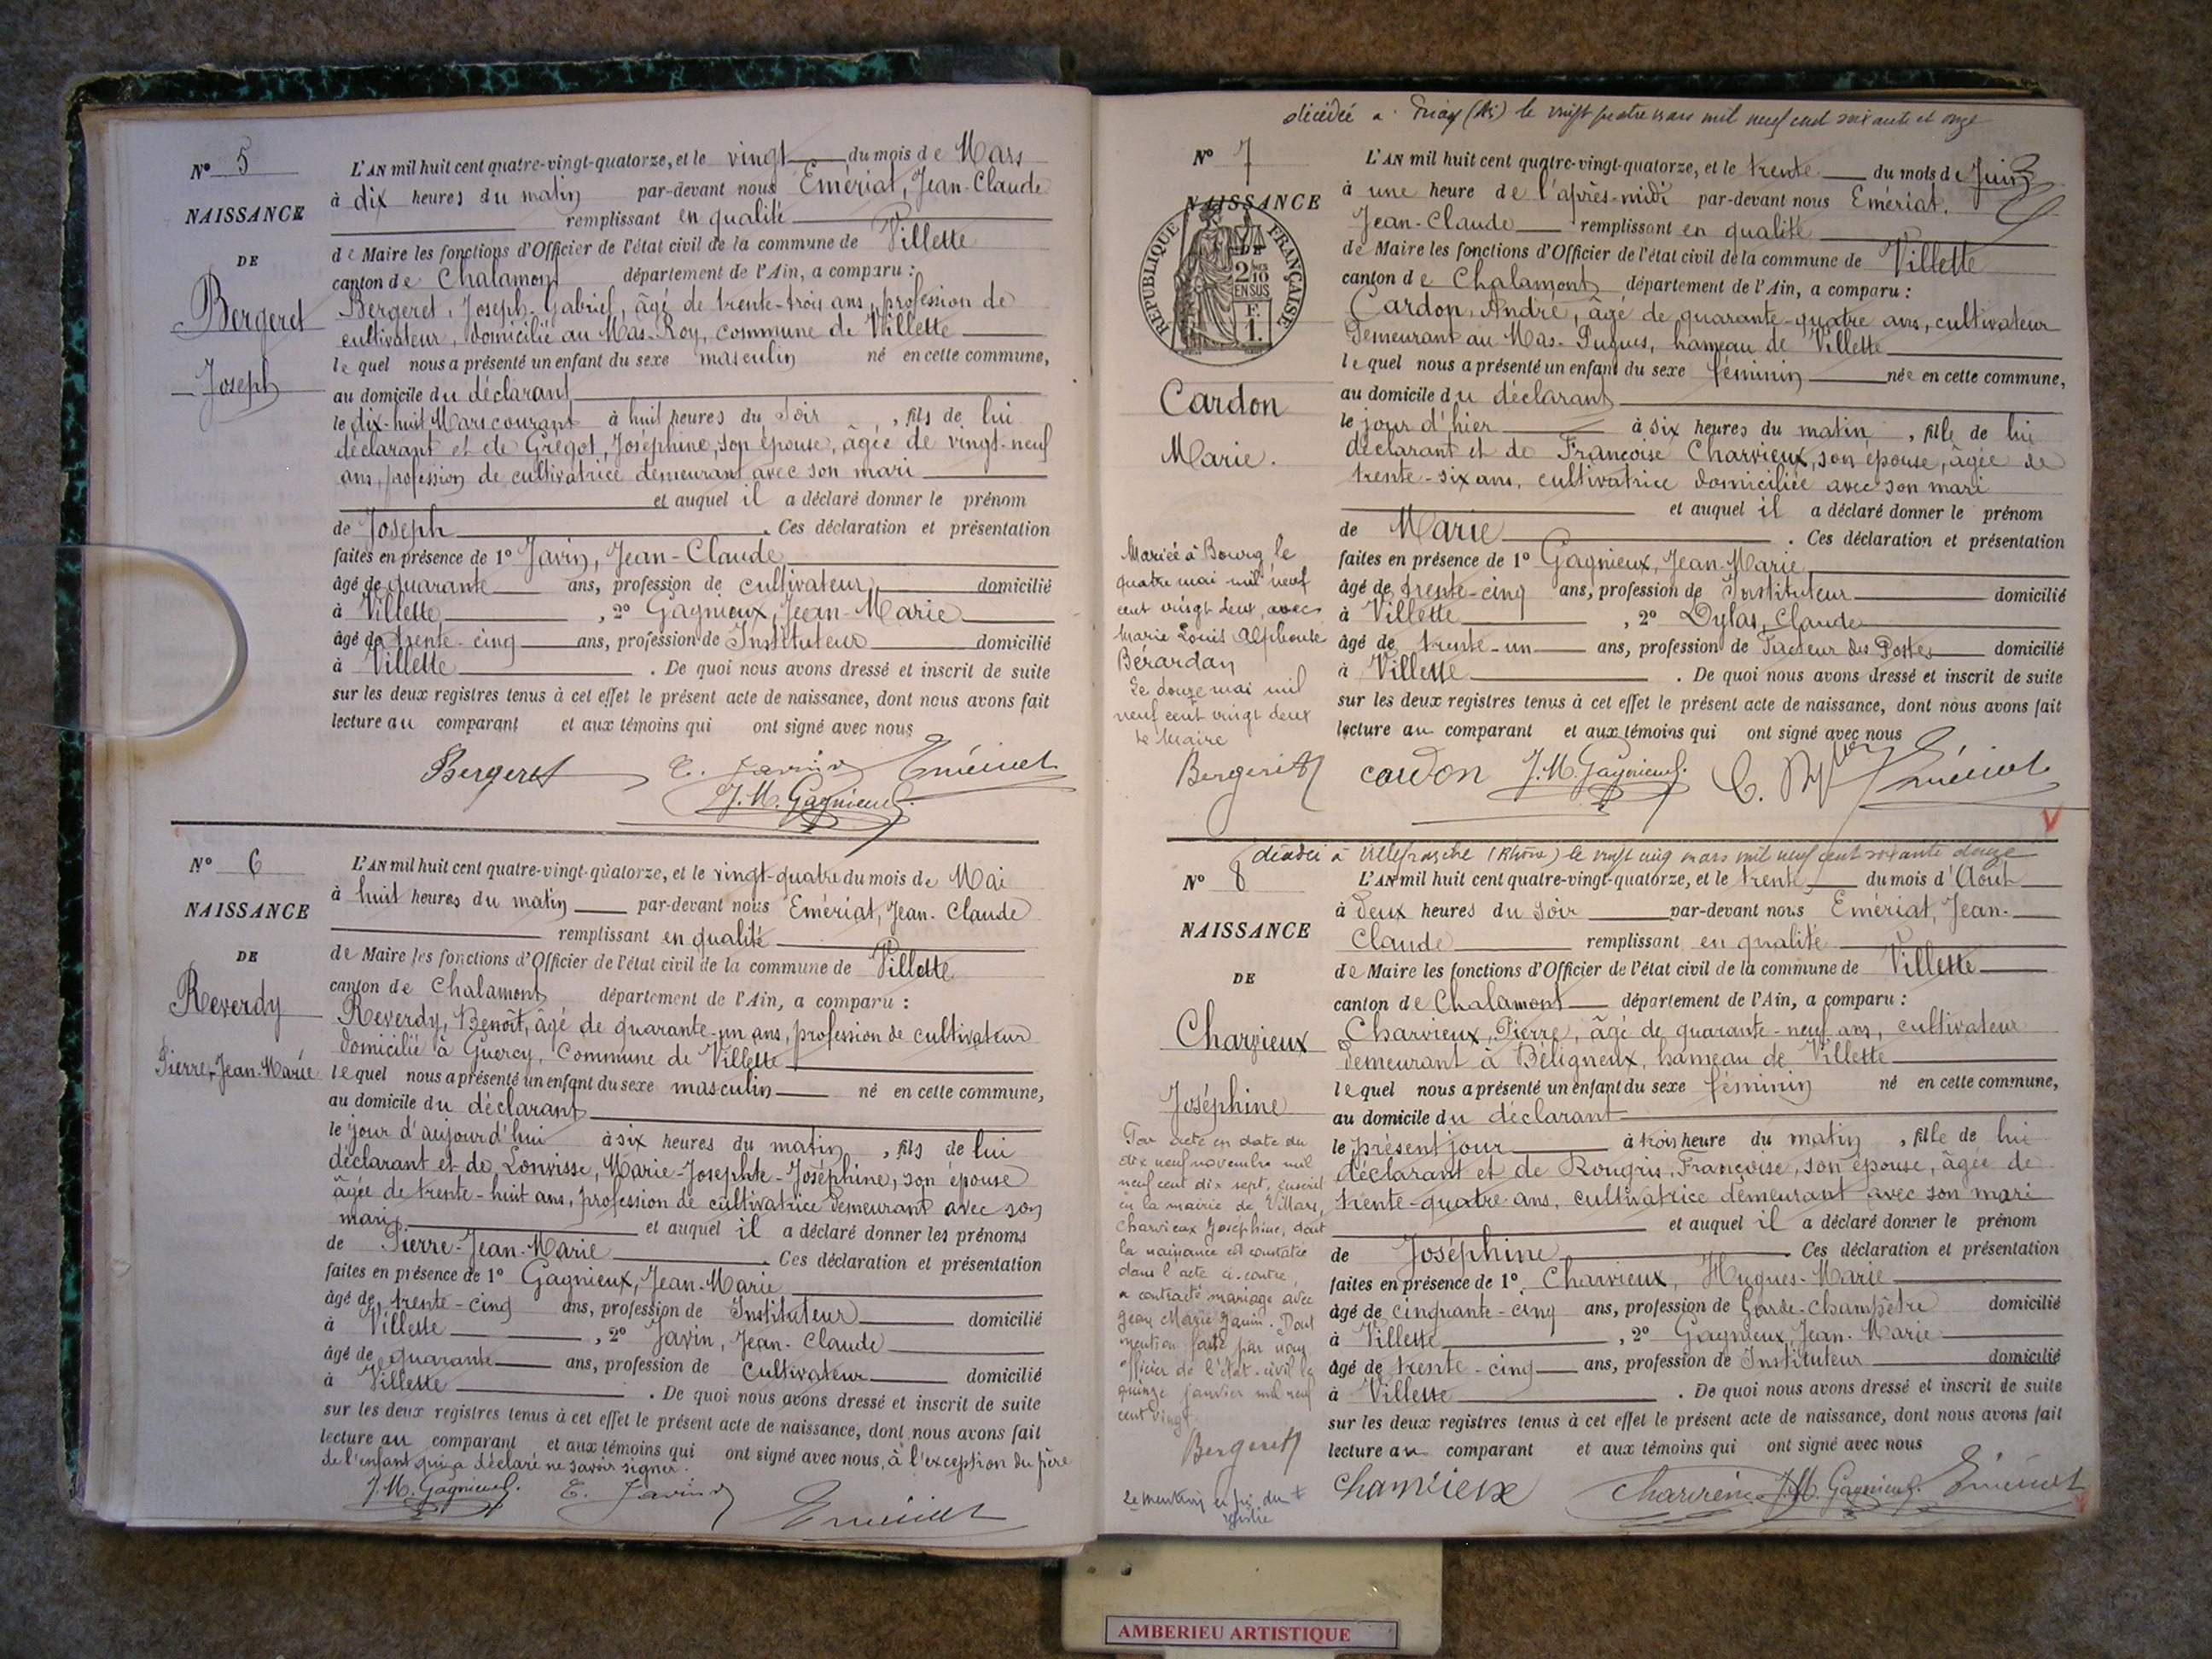 Nº 5
NAISSANCE
DE
Bergeret
Joseph
L'AN mil huit cent quatre-vingt-quatorze, et le vingt du mois de Mars
à dix heures du matin par-devant nous Emériat, Jean-Claude
remplissant en qualité
de Maire les fonctions d'Officier de l'état civil de la commune de Villette
canton de Chalamont département de l'Ain, a comparu :
Bergeret, Joseph-Gabriel, âgé de trente-trois ans, profession de
cultivateur, domicilié au Mas-Roy, commune de Villette
lequel nous a présenté un enfant du sexe masculin né en cette commune,
au domicile du déclarant
le dix-huit Mars courant à huit heures du Soir, fils de lui
déclarant et de Grégot, Joséphine, son épouse, âgée de vingt-neuf
ans, profession de cultivatrice demeurant avec son mari
et auquel il a déclaré donner le prénom
de Joseph. Ces déclaration et présentation
faites en présence de 1º Javin, Jean-Claude
âgé de quarante ans, profession de cultivateur domicilié
à Villette, 2º Gagnieux, Jean-Marie
âgé de trente-cinq ans, profession de Instituteur domicilié
à Villette. De quoi nous avons dressé et inscrit de suite
sur les deux registres tenus à cet effet le présent acte de naissance, dont nous avons fait
lecture au comparant et aux témoins qui ont signé avec nous
Bergeret Javin Emériat
J.M. Gagnieux
Nº 6
NAISSANCE
DE
Reverdy
Pierre-Jean-Marie
L'AN mil huit cent quatre-vingt-quatorze, et le vingt-quatre du mois de Mai
à huit heures du matin par-devant nous Emériat, Jean-Claude
remplissant en qualité
de Maire les fonctions d'Officier de l'état civil de la commune de Villette
canton de Chalamont département de l'Ain, a comparu :
Reverdy, Benoît, âgé de quarante-un ans, profession de cultivateur
domicilié à Guercy, Commune de Villette
lequel nous a présenté un enfant du sexe masculin né en cette commune,
au domicile du déclarant
le jour d'aujourd'hui à six heures du matin, fils de lui
déclarant et de Lonvisse, Marie-Josephte-Joséphine, son épouse
âgée de trente-huit ans, profession de cultivatrice demeurant avec son
mari et auquel il a déclaré donner les prénoms
de Pierre-Jean-Marie. Ces déclaration et présentation
faites en présence de 1º Gagnieux, Jean-Marie
âgé de trente-cinq ans, profession de Instituteur domicilié
à Villette, 2º Javin, Jean-Claude
âgé de quarante ans, profession de Cultivateur domicilié
à Villette. De quoi nous avons dressé et inscrit de suite
sur les deux registres tenus à cet effet le présent acte de naissance, dont nous avons fait
lecture au comparant et aux témoins qui ont signé avec nous, à l'exception du père
de l'enfant qui a déclaré ne savoir signer.
J.M. Gagnieux Javin Emériat
décédée a (Ain) le vingt quatre mars mil neuf cent soixante et onze
Nº 7
NAISSANCE
DE
RÉPUBLIQUE FRANÇAISE
2 10
EN SUS
F.
1.
Cardon
Marie.
Mariée à Bourg le
quatre mai mil neuf
cent vingt deux, avec
Marie Louis Alphonse
Bérardan
Le douze mai mil
neuf cent vingt deux
Le Maire
Bergeret
L'AN mil huit cent quatre-vingt-quatorze, et le trente du mois de Juin
à une heure de l'après-midi par-devant nous Emériat,
Jean-Claude remplissant en qualité
de Maire les fonctions d'Officier de l'état civil de la commune de Villette
canton de Chalamont département de l'Ain, a comparu :
Cardon, André, âgé de quarante-quatre ans, cultivateur
Demeurant au Mas-Pugues, hameau de Villette
lequel nous a présenté un enfant du sexe féminin née en cette commune,
au domicile du déclarant
le jour d'hier à six heures du matin, fille de lui
déclarant et de Françoise Charvieux, son épouse, âgée de
trente-six ans, cultivatrice domiciliée avec son mari
et auquel il a déclaré donner le prénom
de Marie. Ces déclaration et présentation
faites en présence de 1º Gagnieux, Jean-Marie
âgé de trente-cinq ans, profession de Instituteur domicilié
à Villette, 2º Dylas, Claude
âgé de trente-un ans, profession de Facteur des Postes domicilié
à Villette. De quoi nous avons dressé et inscrit de suite
sur les deux registres tenus à cet effet le présent acte de naissance, dont nous avons fait
lecture au comparant et aux témoins qui ont signé avec nous
cardon J.M. Gagnieux C. Dylas Emériat
décédée à Villefranche (Rhône) le vingt cinq mars mil neuf cent soixante douze
Nº 8
NAISSANCE
DE
Charvieux
Joséphine
Par acte en date du
dix neuf novembre mil
neuf cent dix sept, inscrit
en la mairie de Villars,
Charvieux Joséphine, dont
la naissance est constatée
dans l'acte ci-contre,
a contracté mariage avec
Jean Marie Janin. Dont
mention faite par nous
officier de l'état-civil le
quinze janvier mil neuf
cent vingt.
Bergeret
L'AN mil huit cent quatre-vingt-quatorze, et le trente du mois d'Août
à deux heures du soir par-devant nous Emériat, Jean-
Claude remplissant en qualité
de Maire les fonctions d'Officier de l'état civil de la commune de Villette
canton de Chalamont département de l'Ain, a comparu :
Charvieux, Pierre, âgé de quarante-neuf ans, cultivateur
Demeurant à Béligneux, hameau de Villette
lequel nous a présenté un enfant du sexe féminin né en cette commune,
au domicile du déclarant
le présent jour à trois heure du matin, fille de lui
déclarant et de Rougris, Françoise, son épouse, âgée de
trente-quatre ans, cultivatrice demeurant avec son mari
et auquel il a déclaré donner le prénom
de Joséphine. Ces déclaration et présentation
faites en présence de 1º. Charvieux, Hugues-Marie
âgé de cinquante-cinq ans, profession de Garde-champêtre domicilié
à Villette, 2º Gagnieux, Jean-Marie
âgé de trente-cinq ans, profession de Instituteur domicilié
à Villette. De quoi nous avons dressé et inscrit de suite
sur les deux registres tenus à cet effet le présent acte de naissance, dont nous avons fait
lecture au comparant et aux témoins qui ont signé avec nous
Charvieux Charvieux J.M. Gagnieux Emériat
AMBERIEU ARTISTIQUE